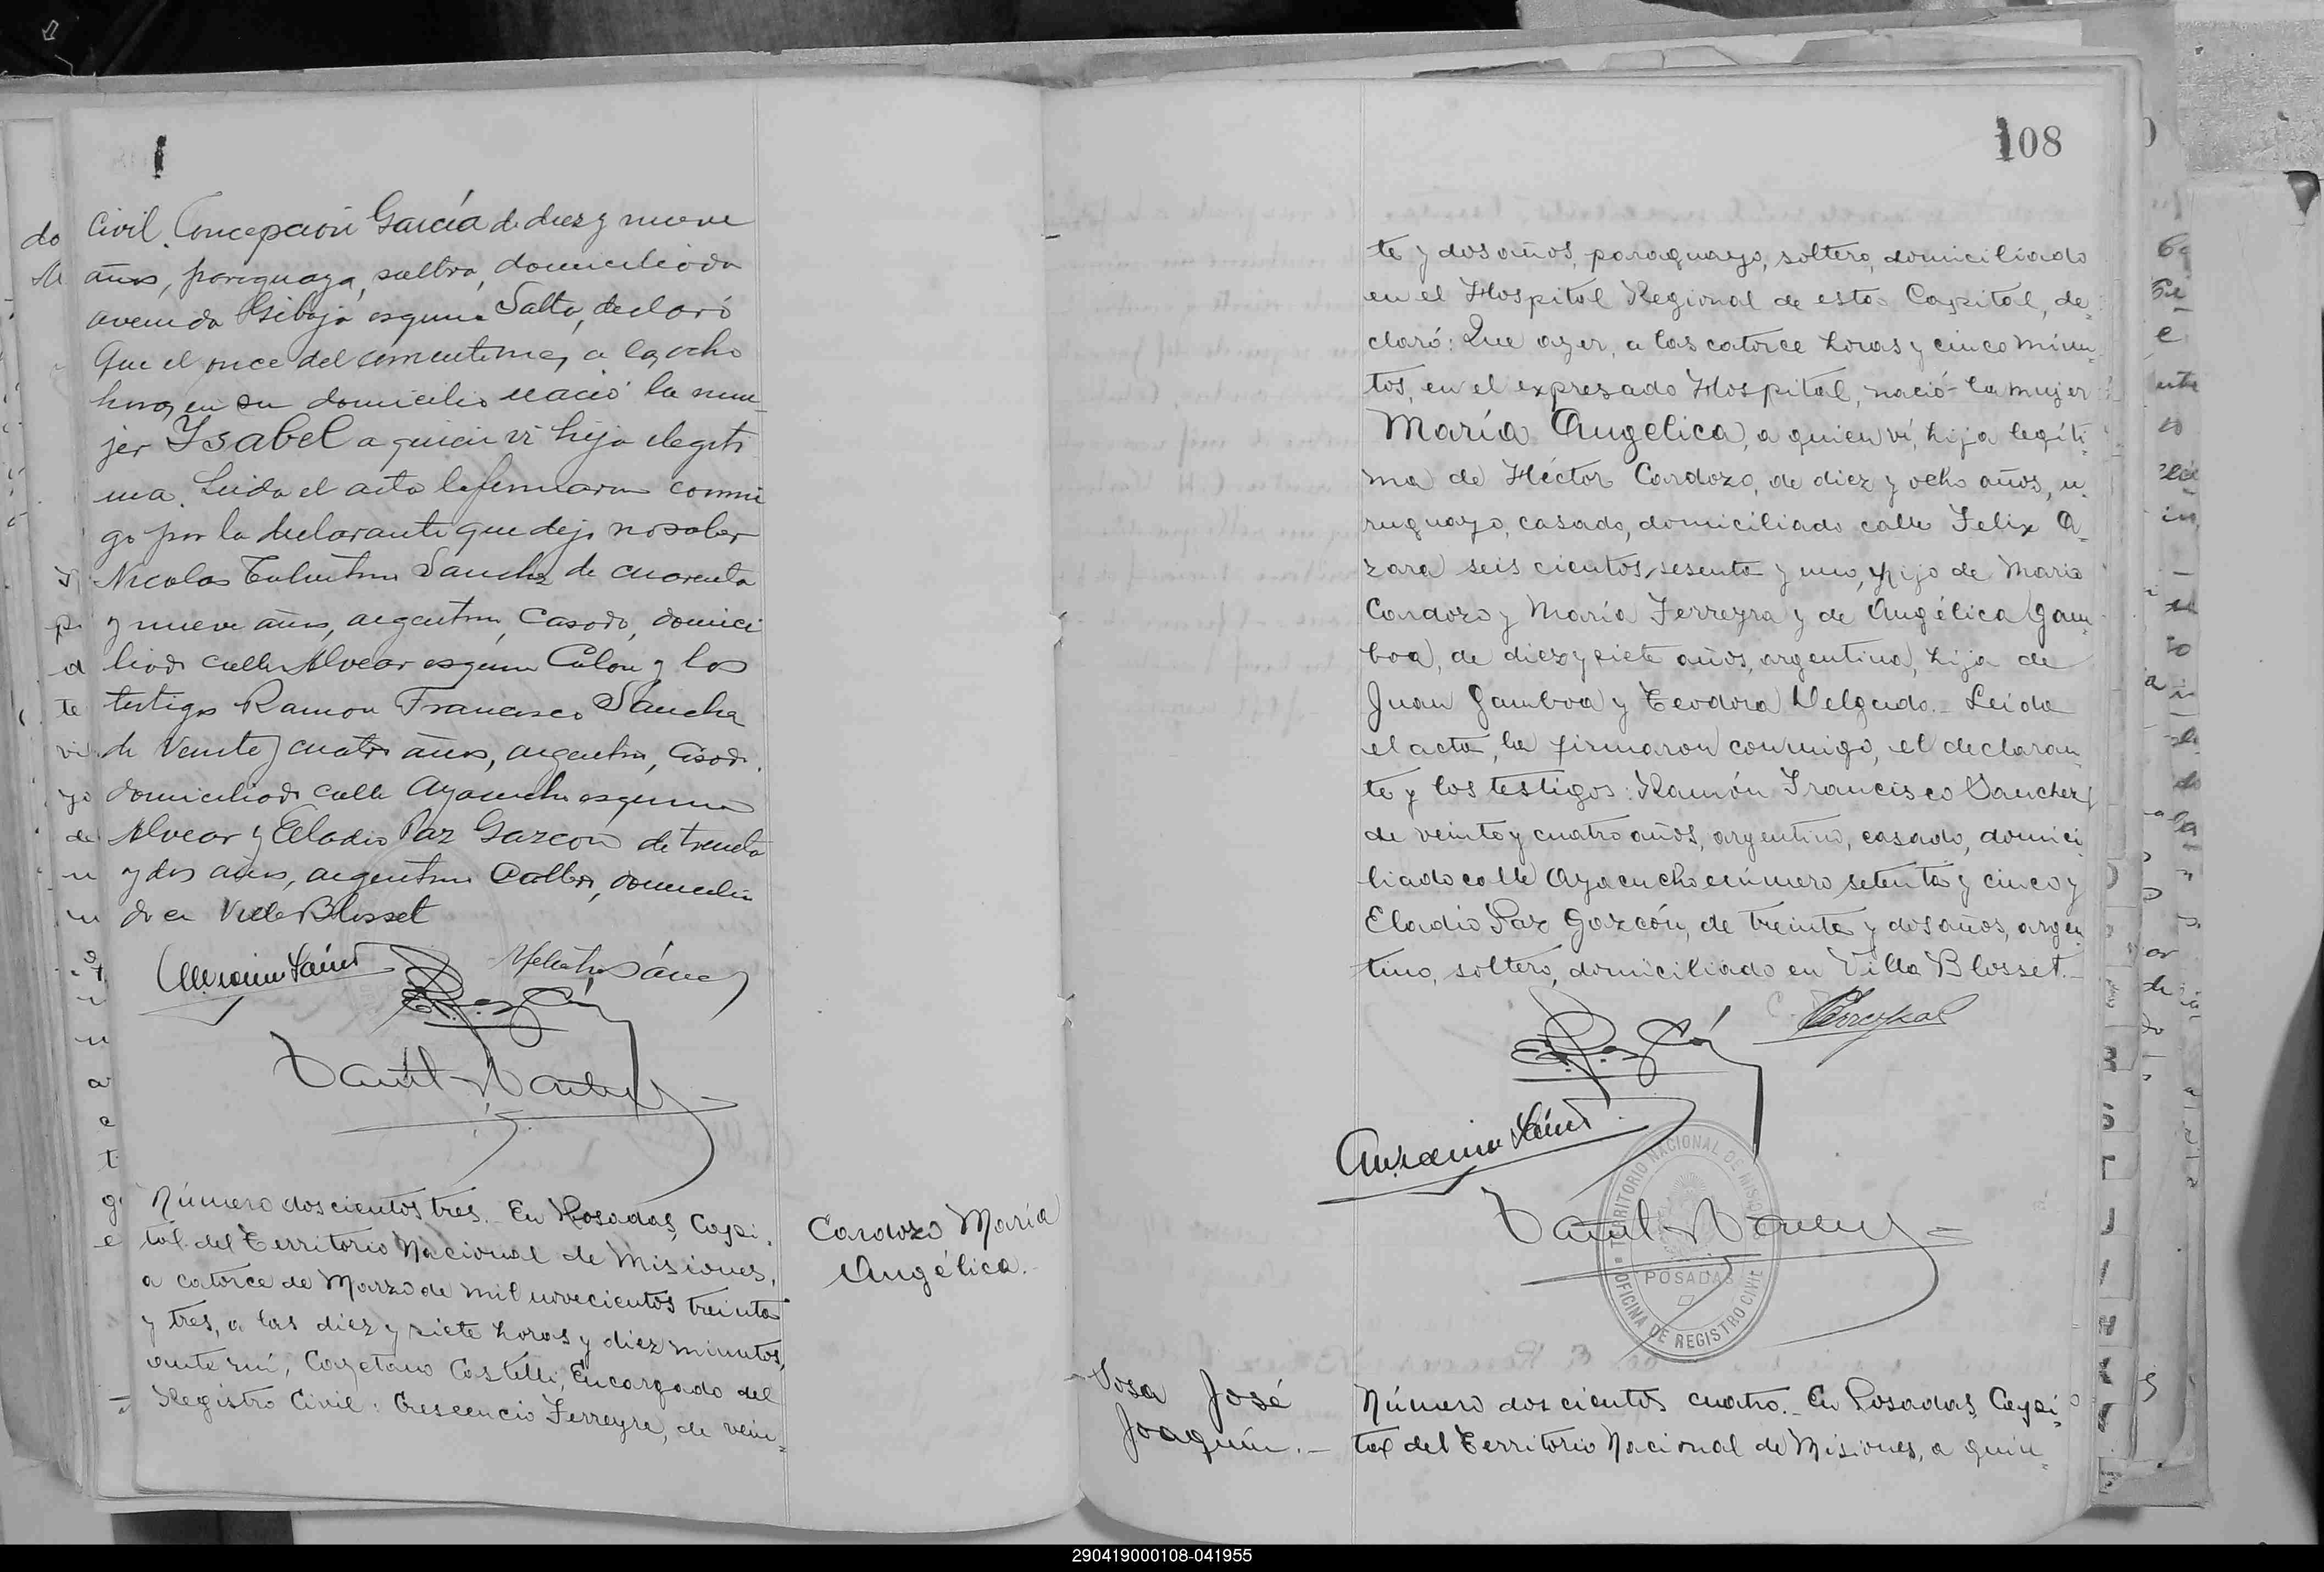 Civil. Concepción García de diez y nueve
años, paraguaya, soltera, domiciliada
avenida esquina Salta, declaró
Que el once del corriente mes, a las ocho
horas, en su domicilio nació la mu-
jer Ysabel a quien vi hija ilegíti
ma. Leida el acta la firmaron conmi
go por la declarante que dijo no saber
Nicolas Sanchez de cuarenta
y nueve años, argentino, Casado, domici
liado calle Alvear esquina Colon y los
testigos Ramon Francisco Sanchez
de Veinte y cuatro años, argentino, casado,
domiciliado calle Ayacucho esquina
Alvear y Eladio Paz Garzon de treinta
y dos años, argentino soltero, domicilia
do en Villa Blosset
Número doscientos tres. En Posadas, Capi-
tal del Territorio Nacional de Misiones,
a catorce de Marzo de mil novecientos treinta
y tres, a las diez y siete horas y diez minutos,
ante mí, Cayetano Castelli, Encargado del
Registro Civil: Crescencio Ferreyra, de vein-
Cardozo María
Angélica.
108
te y dos años, paraguayo, soltero, domiciliado
en el Hospital Regional de esta Capital, de-
claró: Que ayer, a las catorce horas y cinco minu-
tos, en el expresado Hospital, nació la mujer
María Angelica, a quien ví, hija legíti-
ma de Héctor Cardozo, de diez y ocho años, u-
ruguayo, casado, domiciliado calle Felix A-
zara seis cientos sesenta y uno, hijo de Mario
Cardozo y María Ferreyra y de Angélica Gam-
boa, de diez y siete años, argentina, hija de
Juan Gamboa y Teodora Delgado.- Leida
el acta, la firmaron conmigo, el declaran
te y los testigos: Ramón Francisco Sanchez,
de veinte y cuatro años, argentino, casado, domici-
liado calle Ayacucho número setenta y cinco y
Eladio Paz Garzón, de treinta y dos años, argen-
tino, soltero, domiciliado en Villa Blosset.-
TERRITORIO NACIONAL DE MISIONES
POSADAS
OFICINA DE REGISTRO CIVIL
Sosa José
Joaquín.-
Número dos cientos cuatro.- En Posadas, Capi-
tal del Territorio Nacional de Misiones, a quin-
290419000108-041955